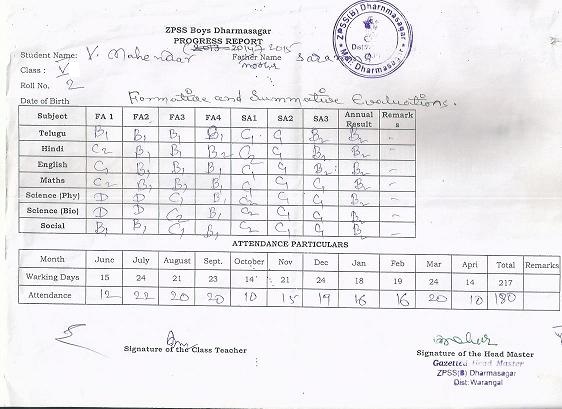 ZPSS Boys Dharmasagar
PROGRESS REPORT
2014 2015
Student Name: V. Mahendar Father Name
Class : V
Roll No. 2
Date of Birth Formative and Summative Evaluations.
Subject FA 1 FA2 FA3 FA4 SA1 SA2 SA3 Annual Result Remark s
Telugu B1 B1 B1 B1 C1 C1 B2 B2 -
Hindi C2 B1 B1 B2 C2 C1 B2 B2 -
English C1 B1 B1 B1 C1 C1 B2 B2 -
Maths C2 B1 B1 B1 C1 C1 C1 B2 -
Science (Phy) D D C1 B1 C1 C1 C1 B2 -
Science (Bio) D D C2 B1 C2 C1 C1 B2 -
Social B1 B1 C1 B1 C2 C1 C1 B2 -
ATTENDANCE PARTICULARS
Month June July August Sept. October Nov Dec Jan Feb Mar Apri Total Remarks
Warking Days 15 24 21 23 14 21 24 18 19 24 14 217
Attendance 12 22 20 20 10 15 19 16 16 20 10 180
Signature of the Class Teacher
Signature of the Head Master
Gazetted Head Master
ZPSS(B) Dharmasagar
Dist: Warangal
ZPSS(B) Dharmasagar
Dist.
Mdl: Dharmasa